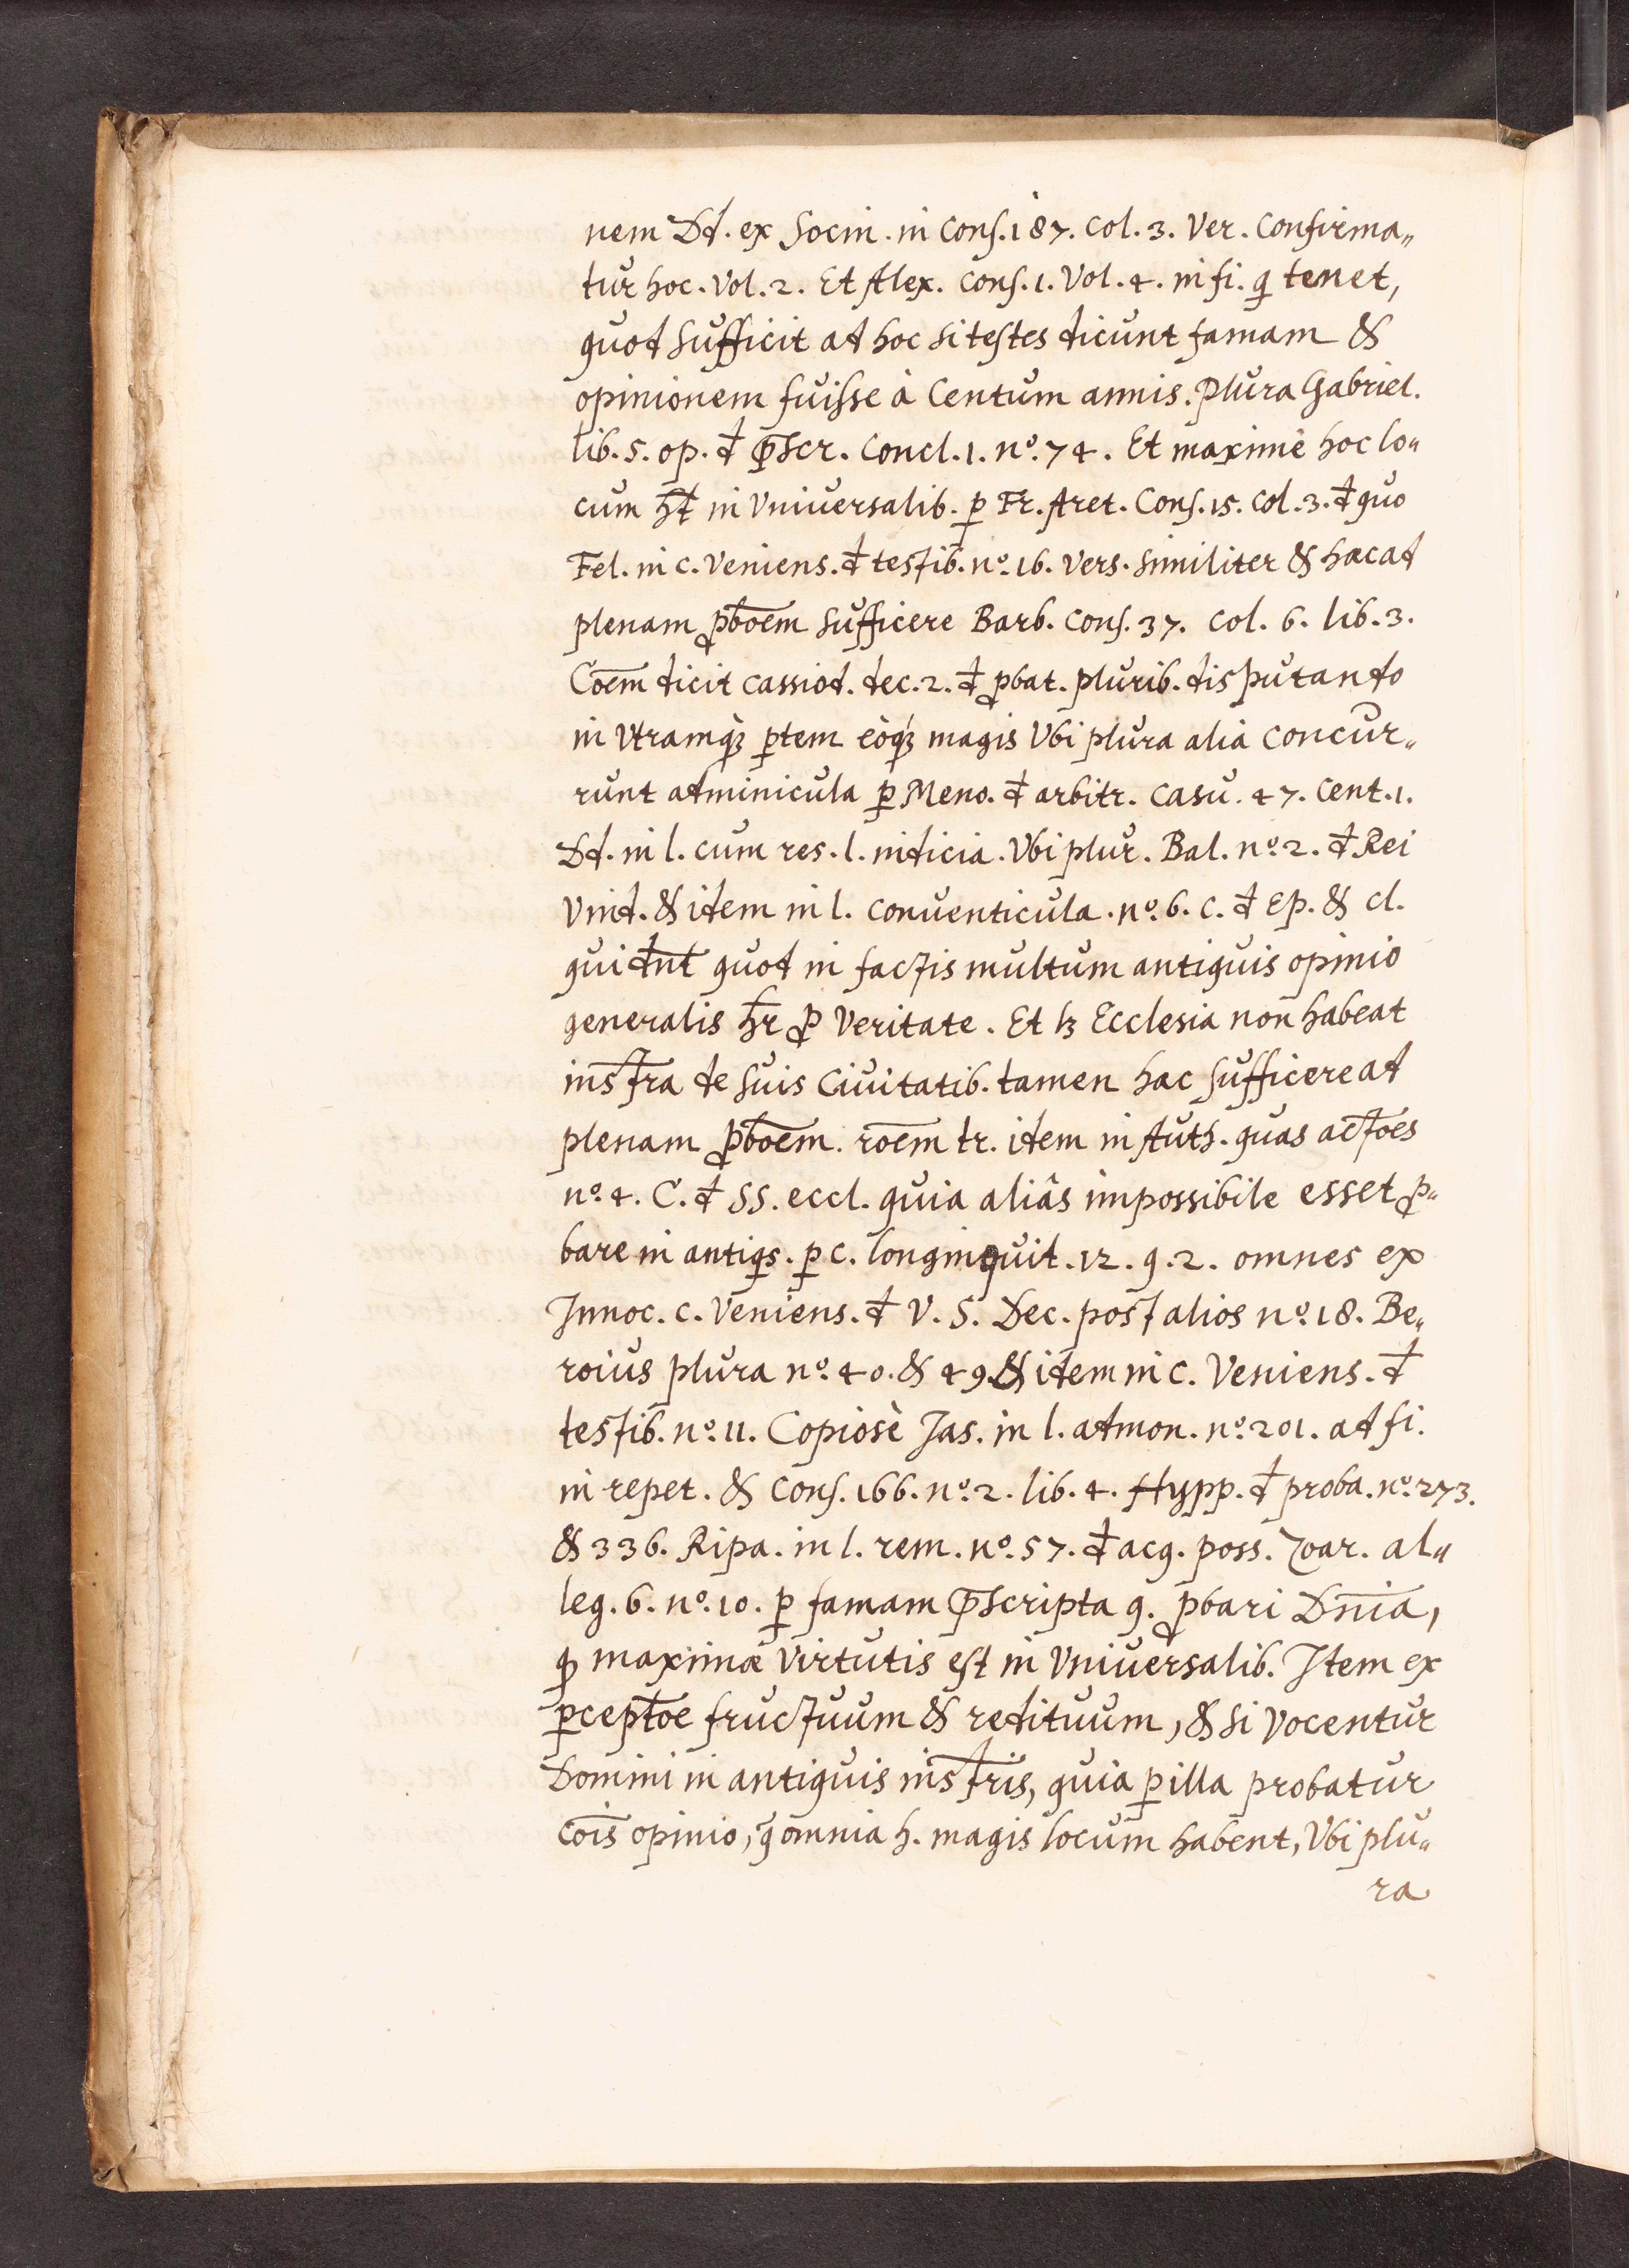 nem Dd. ex Socin. in Cons. 187. Col. 3. Ver. Confirma„
tur hoc. Vol. 2. Et Alex. Cons. 1. Vol. 4. in fi. q̃ tenet,
quod sufficit ad hoc si testes dicunt famam &
opinionem fuisse à Centum annis. Plura Gabriel.
lib. 5. op. đ p̄scr. Concl. 1. nº. 74. Et maximè hoc lo„
cum h̄t in Vniuersalib. ꝑ Fr. Aret. Cons. 15. Col. 3. đ quo
Fel. in c. Veniens. đ testib. nº. 16. Vers. Similiter & hæc ad
plenam ꝓbōem sufficere Barb. Cons. 37. Col. 6. lib. 3.
Cōem dicit Cassiod. dec. 2. đ ꝓbat. plurib. disputando
in Vtramq́ꝫ ꝑtem eòq́ꝫ magis Vbi plura alia concur„
runt adminicula ꝑ Meno. đ arbitr. Casu. 47. Cent. 1.
Dd. in l. cum res. l. indicia. Vbi plur. Bal. nº. 2. đ Rei
Vind. & idem in l. Conuenticula. nº. 6. C. đ Ep. & cl.
qui dn̄t quod in factis multum antiquis opinio
generalis h̄r ꝓ Veritate. Et lꝫ Ecclesia non habeat
inst̄ra de suis Ciuitatib. tamen hac sufficere ad
plenam ꝓbōem. rōem tr. idem in Auth. quas act̄oes
nº. 4. C. đ SS. eccl. quia aliâs impossibile esset ꝓ„
bare in antiqs. ꝑ c. longinquit. 12. q. 2. omnes ex
Innoc. c. Veniens. đ V. S. Dec. post alios nº. 18. Be„
roius plura nº. 40. & 49. & idem in c. Veniens. đ
testib. nº. 11. Copiosè Jas. in l. admon. nº. 201. ad fi.
in repet. & Cons. 166. nº. 2. lib. 4. Hypp. đ proba. nº. 273.
& 336. Ripa. in l. rem. nº. 57. đ acq. poss. Zoar. al„
leg. 6. nº. 10. ꝑ famam p̄scripta q. ꝓbari Dn̄ia,
q̃ maximæ Virtutis est in Vniuersalib. Item ex
ꝑcept̄oe fructuum & redituum, & si Vocentur
Domini in antiquis inst̄ris, quia ꝑ illa probatur
cōis opinio, q̄ omnia h. magis locum habent, Vbi plu„
ra